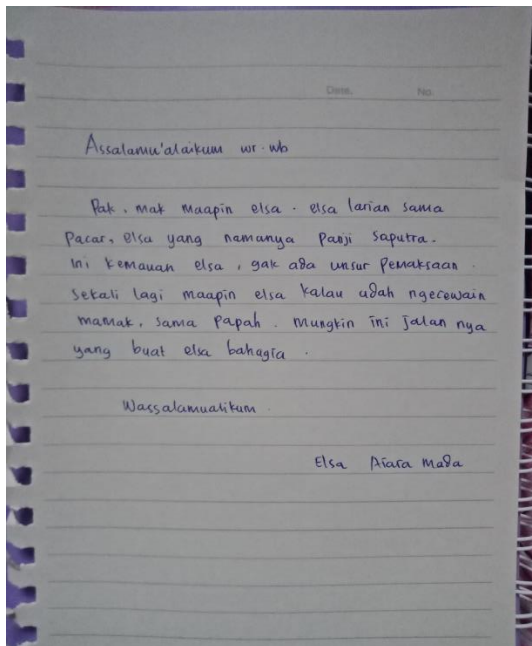 Date. No.
Assalamu'alaikum wr. wb
Pak, mak maapin elsa. elsa larian sama
Pacar, elsa yang namanya Panji Saputra.
Ini kemauan elsa, gak ada unsur Pemaksaan.
Sekali lagi maapin elsa kalau udah ngecewain
mamak, sama Papah. Mungkin ini jalan nya
yang buat elsa bahagia.
Wassalamualikum.
Elsa Aiara Mada